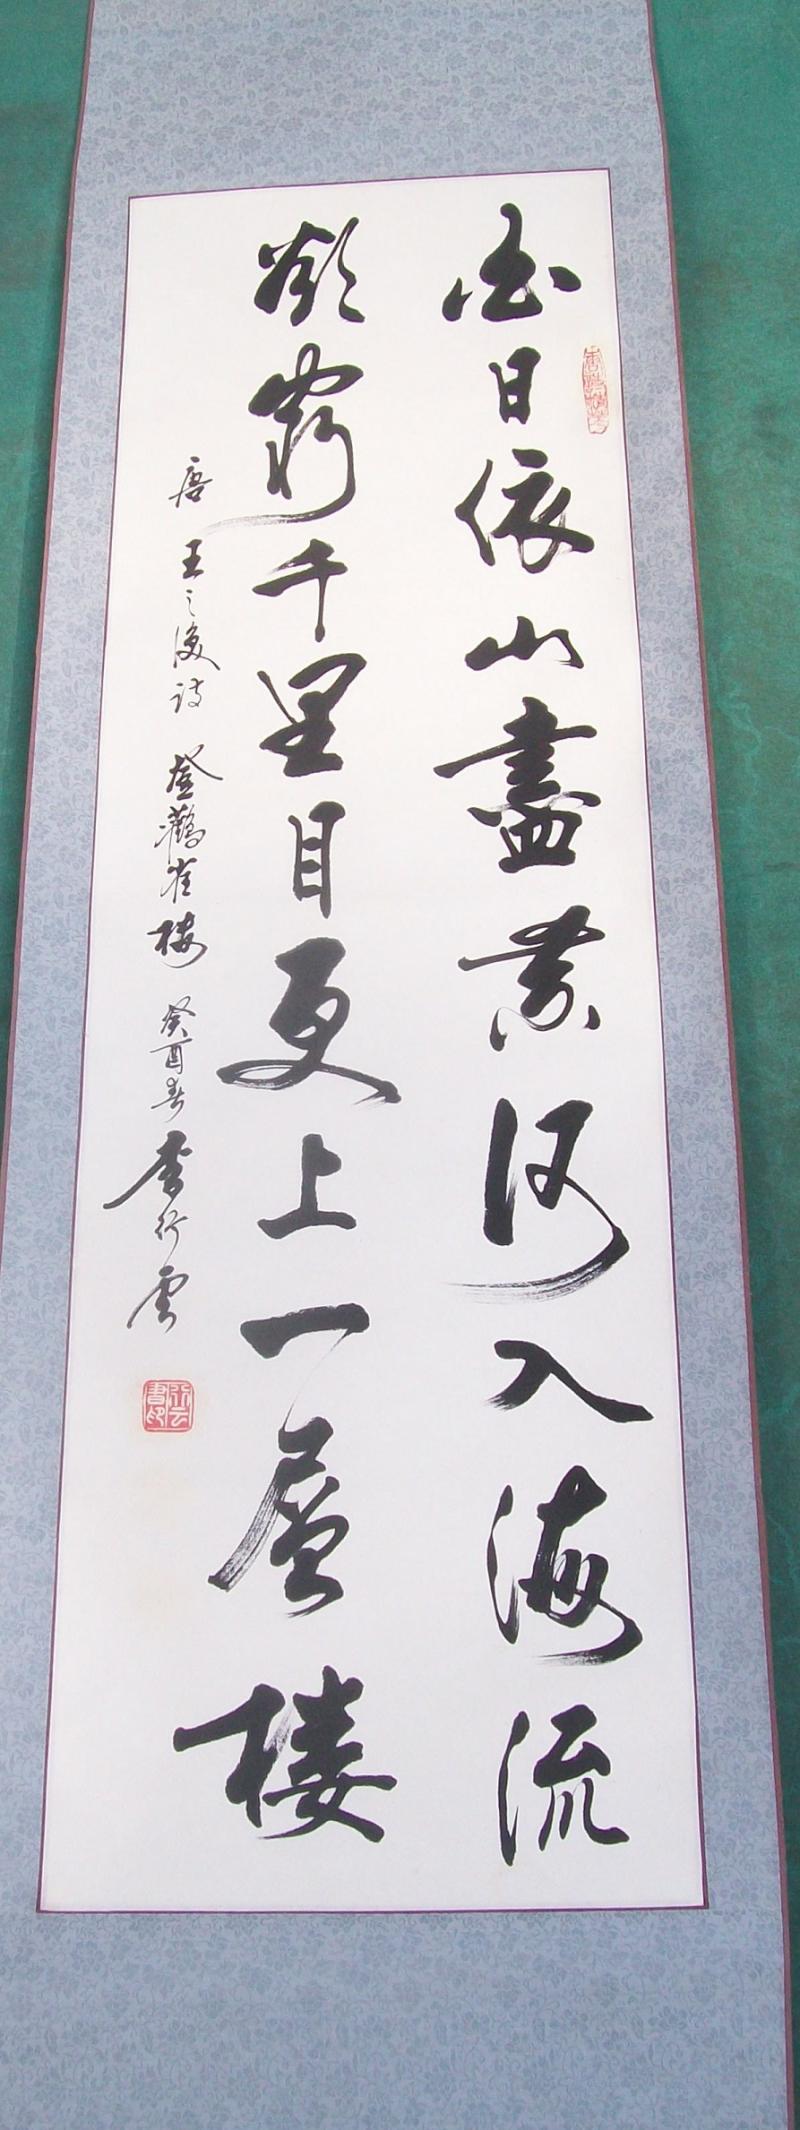 白日依山盡黄河入海流
欲窮千里目更上一層楼
唐 王之渙诗 登鸛雀楼 癸酉春 李行雲
行云書印